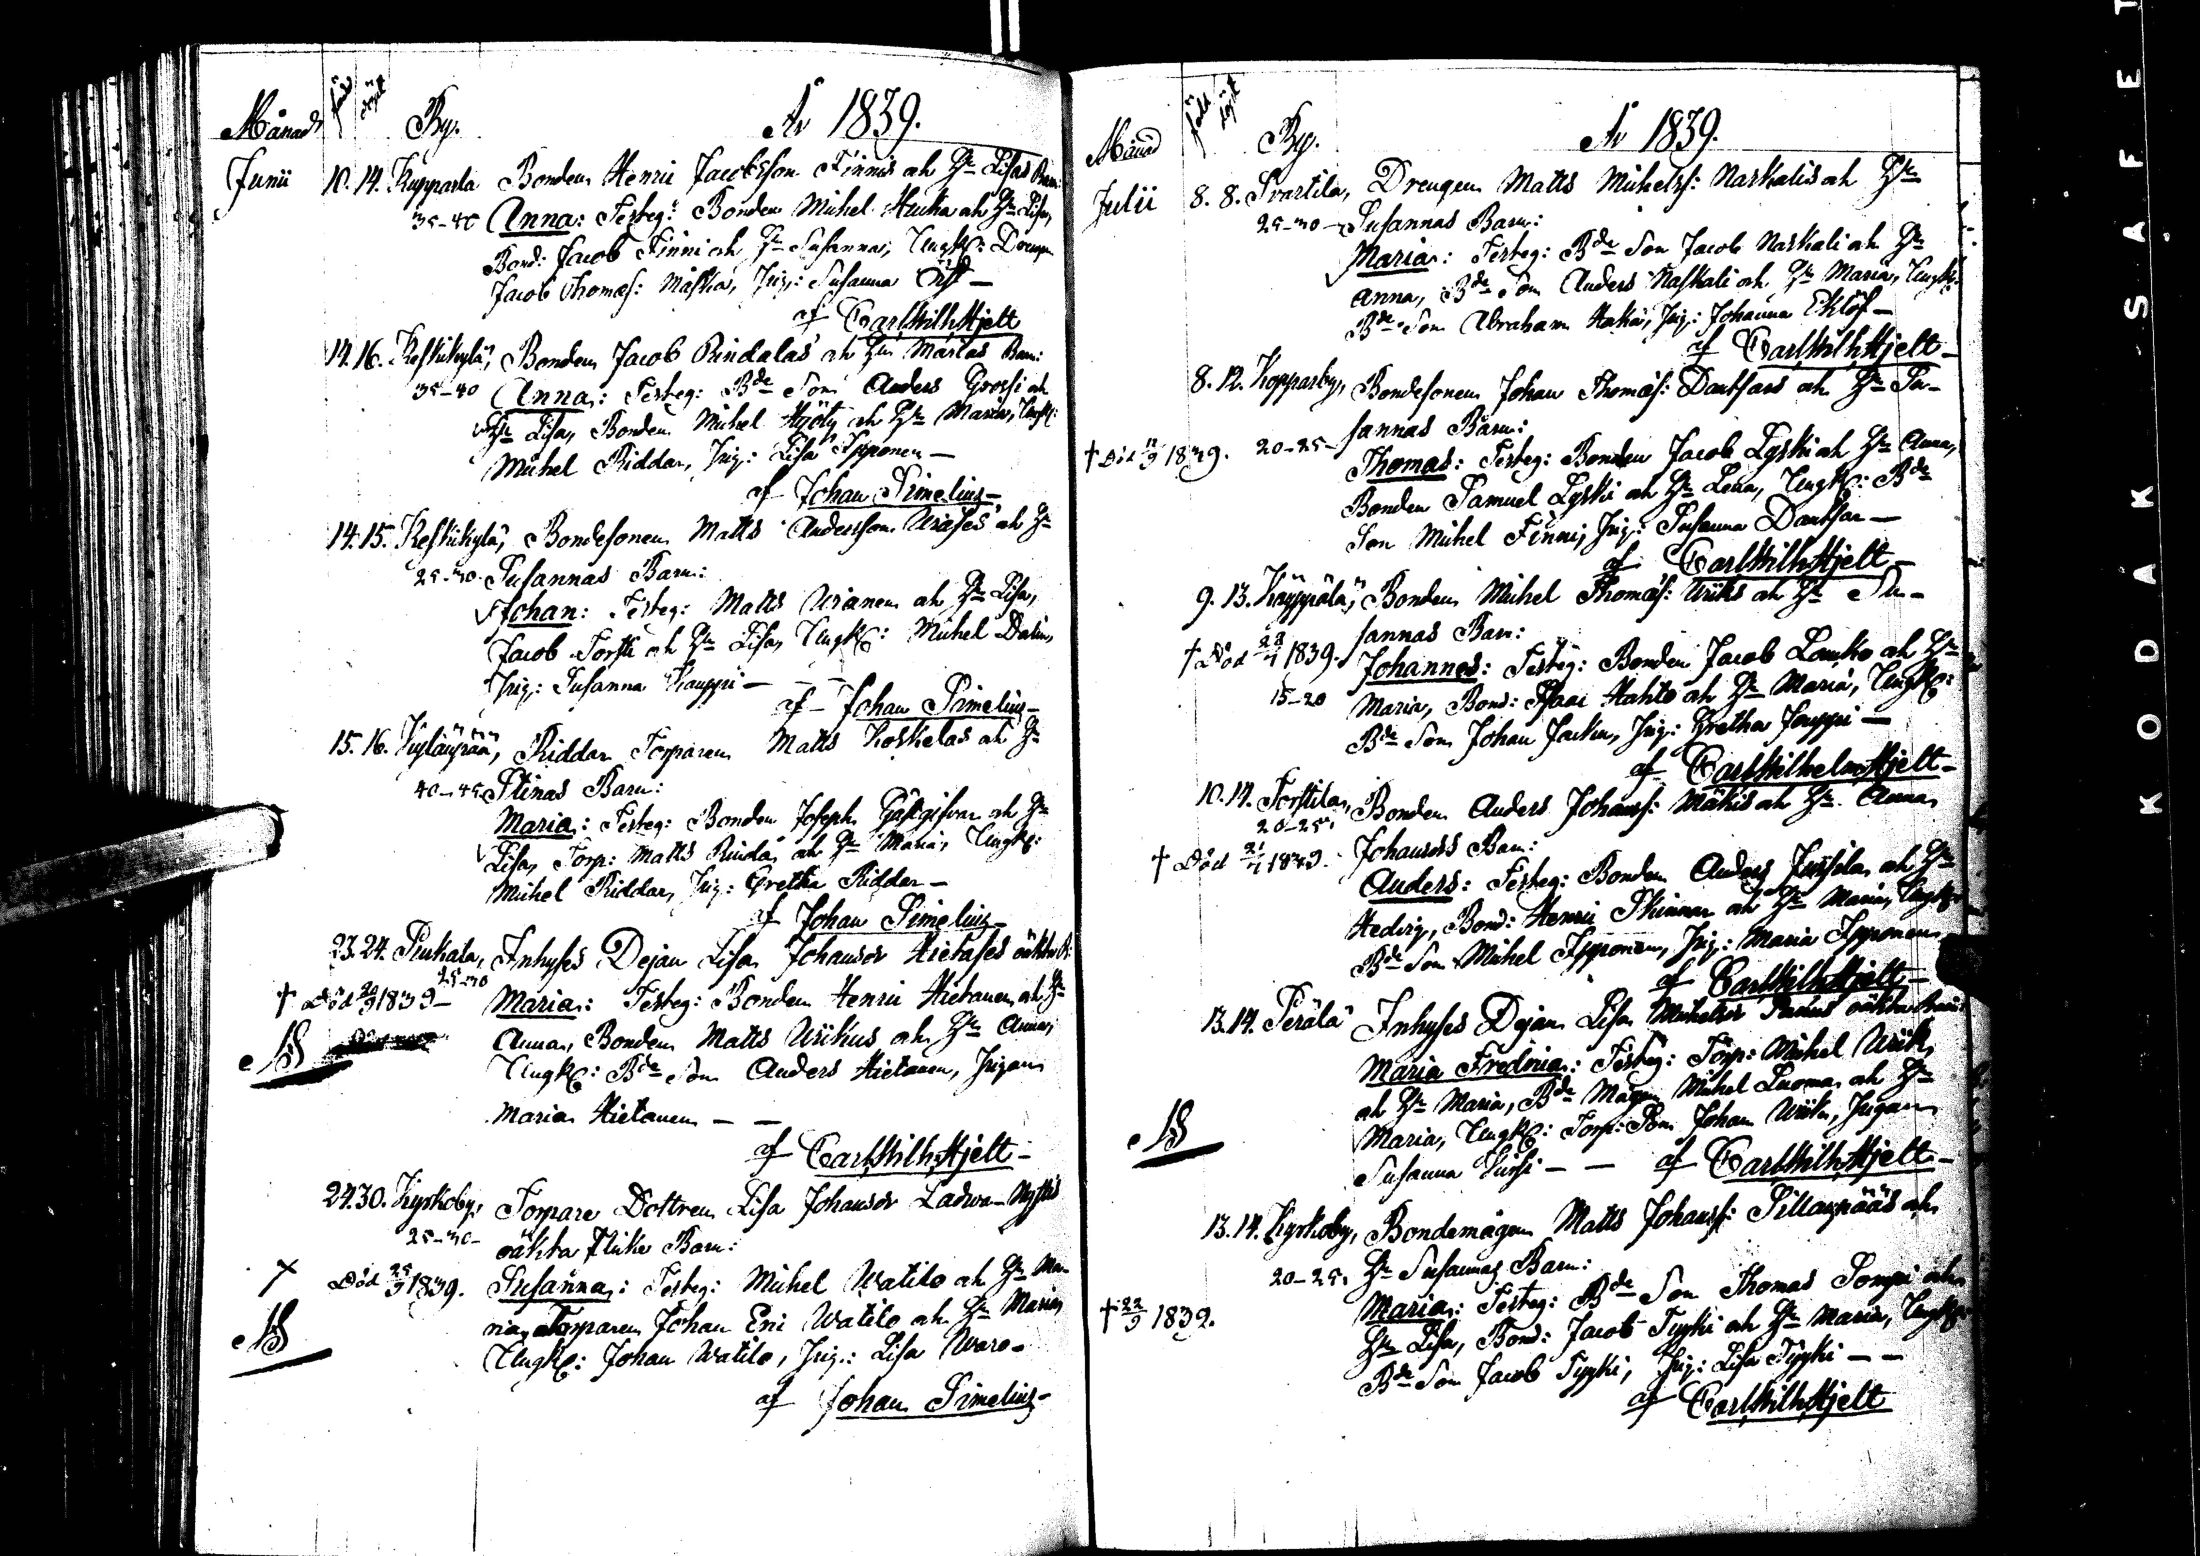 Månad född döpt By. År 1839.
Junii 10. 14. Kupparla Bonden Henric Jacobsson Finnis och H: Lisas Barn:
35-40 Anna: Testeg: Bonden Michel Hucka och H: Lisa,
Bond: Jacob Finni och H: Susanna, Ungk: Dreng
Jacob Thomæs: Maska, Pig: Susanna
af Carl Wilh Hjelt
14. 16. Keskikylä, Bonden Jacob Rindalas och H: Marias Barn:
35-40 Anna: Testeg: B:de Son Anders Grossi och
H: Lisa, Bonden Michel Hyöty och H: Maria, Ungk:
Michel Riddar, Pig: Lisa Ypponen -
af Johan Simelius -
14. 15. Keskikylä, Bondesonen Matts Andersson Uriases och H:
25-30. Susannas Barn:
Johan: Testeg: Matts Urianen och H: Lisa,
Jacob Torsti och H: Lisa, Ungk: Michel Dalin,
Pig: Susanna Kauppi -
af Johan Simelius -
15. 16. Kyläinpää, Riddar Torparen Matts Koskelas och H:
40-45 Stinas Barn:
Maria: Testeg: Bonden Joseph Gästgifvar och H:
Lisa, Torp: Matts Rinda och H: Maria, Ungk:
Michel Riddar, Pig: Gretha Riddar -
af Johan Simelius -
23. 24. Rukala, Inhyses Dejan Lisa Johansdr Hietases oäkta B:
25-30
† Död 20/9 1839 - Maria: Testeg: Bonden Henric Hietanen och H:
Anna, Bonden Matts Wikus och H: Anna,
NB Ungk: B:de Son Anders Hietanen, Pigan
Maria Hietanen - -
af Carl Wilh Hjelt -
24. 30. Kyrkoby, Torpare Dottren Lisa Johansdr Ladwa-Nystis
25-30- oäkta flicke Barn:
Död 25/9 1839. Susanna: Testeg: Michel Watilo och H: Ma-
ria, Torparen Johan Eric Watilo och H: Maria,
NB Ungk: Johan Watilo, Pig: Lisa Waro -
af Johan Simelius -
Månad född döpt By. År 1839.
Julii 8. 8. Svartila, Drengen Matts Michelss: Naskalis och H:
25-30 - Susannas Barn:
Maria: Testeg: B:de Son Jacob Naskali och H:
Anna, B:de Son Anders Naskali och H: Maria, Ungk:
B:de Son Abraham Haka, Pig: Johanna Eklöf -
af Carl Wilh Hjelt -
8. 12. Kopparby, Bondesonen Johan Thomæs: Dantsars och H: Su-
20-25- sannas Barn:
† Död 11/9 1839. Thomas: Testeg: Bonden Jacob Lyski och H: Anna,
Bonden Samuel Lyski och H: Lena, Ungk: B:de
Son Michel Finni, Pig: Susanna Dantsar -
af Carl Wilh Hjelt -
9. 13. Käppälä, Bonden Michel Thomæs: Wiiks och H: Su-
sannas Barn:
† Död 22/7 1839. Johannes: Testeg: Bonden Jacob Louko och H:
15-20 Maria, Bond: Isaac Hahto och H: Maria, Ungk:
B:de Son Johan Jacku, Pig: Gretha Jauppi -
af Carl Wilhelm Hjelt -
10. 14. Torstila, Bonden Anders Johanss: Mäkis och H: Anna
20-25. Johansdrs Barn:
† Död 21/7 1839. Anders: Testeg: Bonden Anders Jussila och H:
Hedvig, Bond: Henric Skinnar och H: Maria, Ungk:
B:de Son Michel Ypponen, Pig: Maria Ypponen
af Carl Wilh Hjelt -
13. 14. Perälä Inhyses Dejan Lisa Michelsdr oäkta Barn:
Maria Fredrica: Testeg: Torp: Michel Wiik,
och H: Maria, B:de Mågen Michel Luoma och H:
Maria, Ungk: Torp: Son Johan Wiik, Pigan
NB Susanna Kursi - - af Carl Wilh Hjelt -
13. 14. Kyrkoby, Bondemågen Matts Johanss: Sillanpääs och
20-25. H: Susannas Barn:
† 22/9 1839. Maria: Testeg: B:de Son Thomas Pompi och
H: Lisa, Bond: Jacob Typki och H: Maria, Ungk:
B:de Son Jacob Typki, Pig: Lisa Typki - -
af Carl Wilh Hjelt
KODAK SAFET